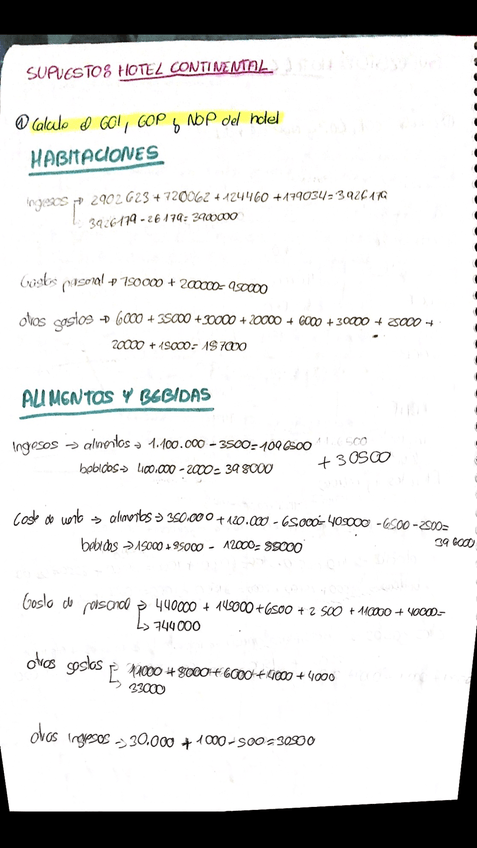 SUPUESTOS HOTEL CONTINENTAL
① Calculo d GOI, GOP y NOP del hotel
HABITACIONES
Ingresos → 2902623 + 720062 + 124460 + 179034 = 3926179
3926179 - 26179 = 3900000
Gastos personal → 750000 + 200000 = 950000
otros gastos → 6000 + 35000 + 30000 + 20000 + 6000 + 30000 + 25000 +
20000 + 15000 = 187000
ALIMENTOS Y BEBIDAS
Ingresos → alimentos → 1.100.000 - 3500 = 1096500
+ 30500
bebidas → 400.000 - 2000 = 398000
Coste de venta → alimentos → 350.000 + 120.000 - 65000 = 405000 - 6500 - 2500 =
396000
bebidas → 15000 + 85000 - 12000 = 88000
Gasto de personal → 440000 + 145000 + 6500 + 2500 + 110000 + 40000 =
→ 744000
otros gastos → 11000 + 8000 + 6000 + 4000 + 4000
→ 33000
otros ingresos → 30.000 + 1000 - 500 = 30500